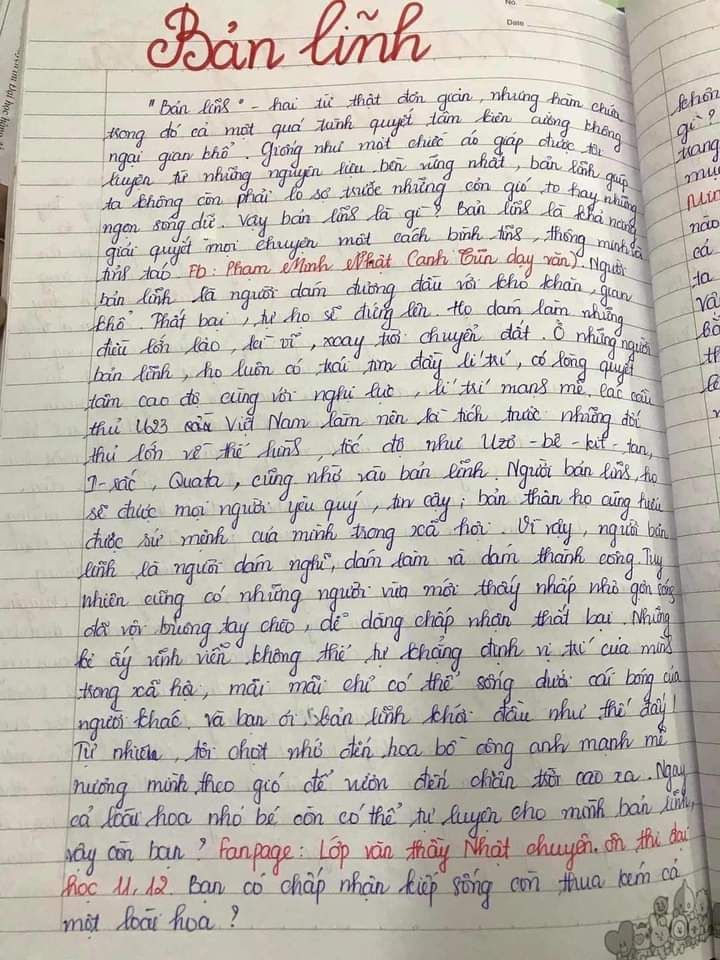 No.
Date
Bản lĩnh
"Bản lĩnh" - hai từ thật đơn giản, nhưng hàm chứa
trong đó cả một quá trình quyết tâm kiên cường không
ngại gian khổ. Giống như một chiếc áo giáp được tôi
luyện từ những nguyên liệu bền vững nhất, bản lĩnh giúp
ta không còn phải lo sợ trước những cơn gió to hay những
ngọn sóng dữ. Vậy bản lĩnh là gì? Bản lĩnh là khả năng
giải quyết mọi chuyện một cách bình tĩnh, thông minh và
tỉnh táo Fb: Phạm Minh Nhật (anh Tũn dạy văn). Người
bản lĩnh là người dám đương đầu với khó khăn, gian
khổ. Thất bại, tự họ sẽ đứng lên. Họ dám làm những
điều lớn lao, kì vĩ, xoay trời chuyển đất. Ở những người
bản lĩnh, họ luôn có trái tim đầy lí trí, có lòng quyết
tâm cao độ cùng với nghị lực, lí trí mạnh mẽ. Các cầu
thủ U23 của Việt Nam làm nên kì tích trước những đối
thủ lớn về thể hình, tốc độ như Uzơ-bê-kit-tan,
I-rắc, Quata, cũng nhờ vào bản lĩnh. Người bản lĩnh, họ
sẽ được mọi người yêu quý, tin cậy; bản thân họ cũng hiểu
được sứ mệnh của mình trong xã hội. Vì vậy, người bản
lĩnh là người dám nghĩ, dám làm và dám thành công. Tuy
nhiên cũng có những người vừa mới thấy nhấp nhô gợn sóng
đã vội buông tay chèo, dễ dàng chấp nhận thất bại. Những
kẻ ấy vĩnh viễn không thể tự khẳng định vị trí của mình
trong xã hội, mãi mãi chỉ có thể sống dưới cái bóng của
người khác. Và bạn ơi, bản lĩnh khởi đầu như thế đấy!
Tự nhiên, tôi chợt nhớ đến hoa bồ công anh mạnh mẽ
nương mình theo gió để vươn đến chân trời cao xa. Ngay
cả loài hoa nhỏ bé còn có thể tự luyện cho mình bản lĩnh,
vậy còn bạn? Fanpage: Lớp văn thầy Nhật chuyên ôn thi đại
học 11, 12. Bạn có chấp nhận kiếp sống còn thua kém cả
một loài hoa?